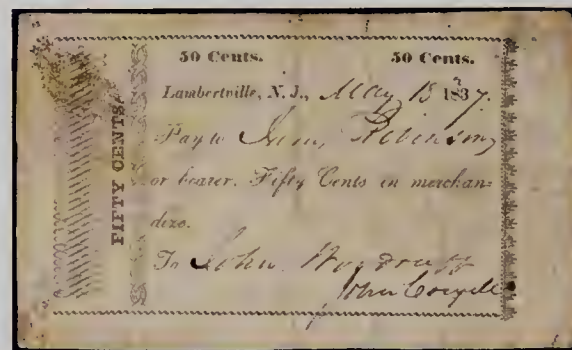 50 Cents. 50 Cents.
FIFTY CENTS.
Lambertville, N. J., May 18 1837.
Pay to Robinson,
or bearer, Fifty Cents in merchan-
dize.
To John Woodruff
John Coryell